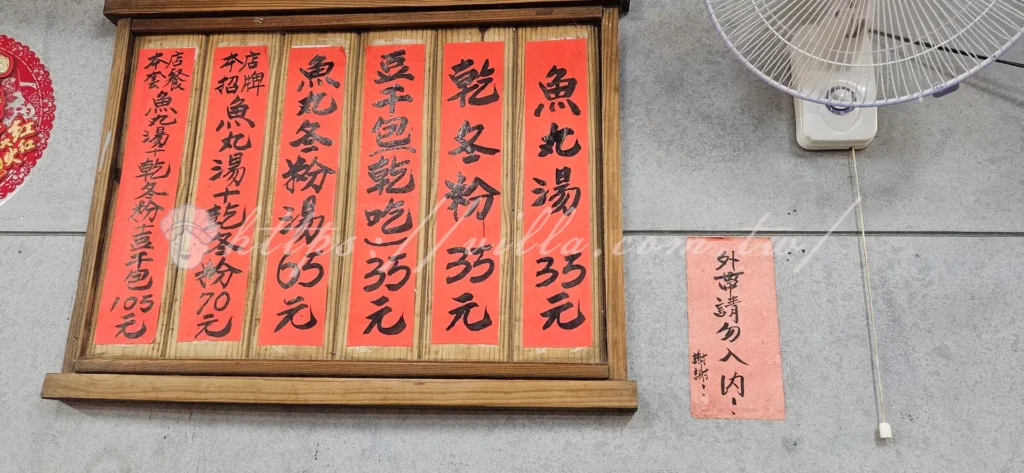 魚丸湯 35元
乾冬粉 35元
豆干包(乾吃)35元
魚丸冬粉湯 65元
本店招牌 魚丸湯+乾冬粉 70元
本店套餐 魚丸湯+乾冬粉+豆干包 105元
外帶請勿入內
謝謝
https://villa.com.tw/